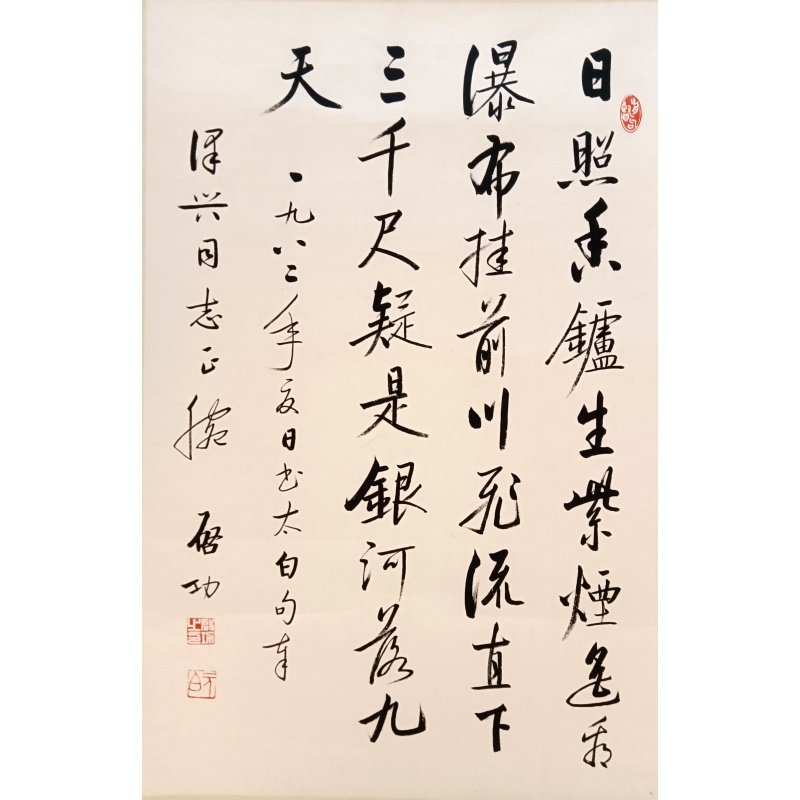 日照香鑪生紫煙遙看
瀑布挂前川飛流直下
三千尺疑是銀河落九
天
一九八二年夏日书太白句奉
泽兴同志正腕
启功